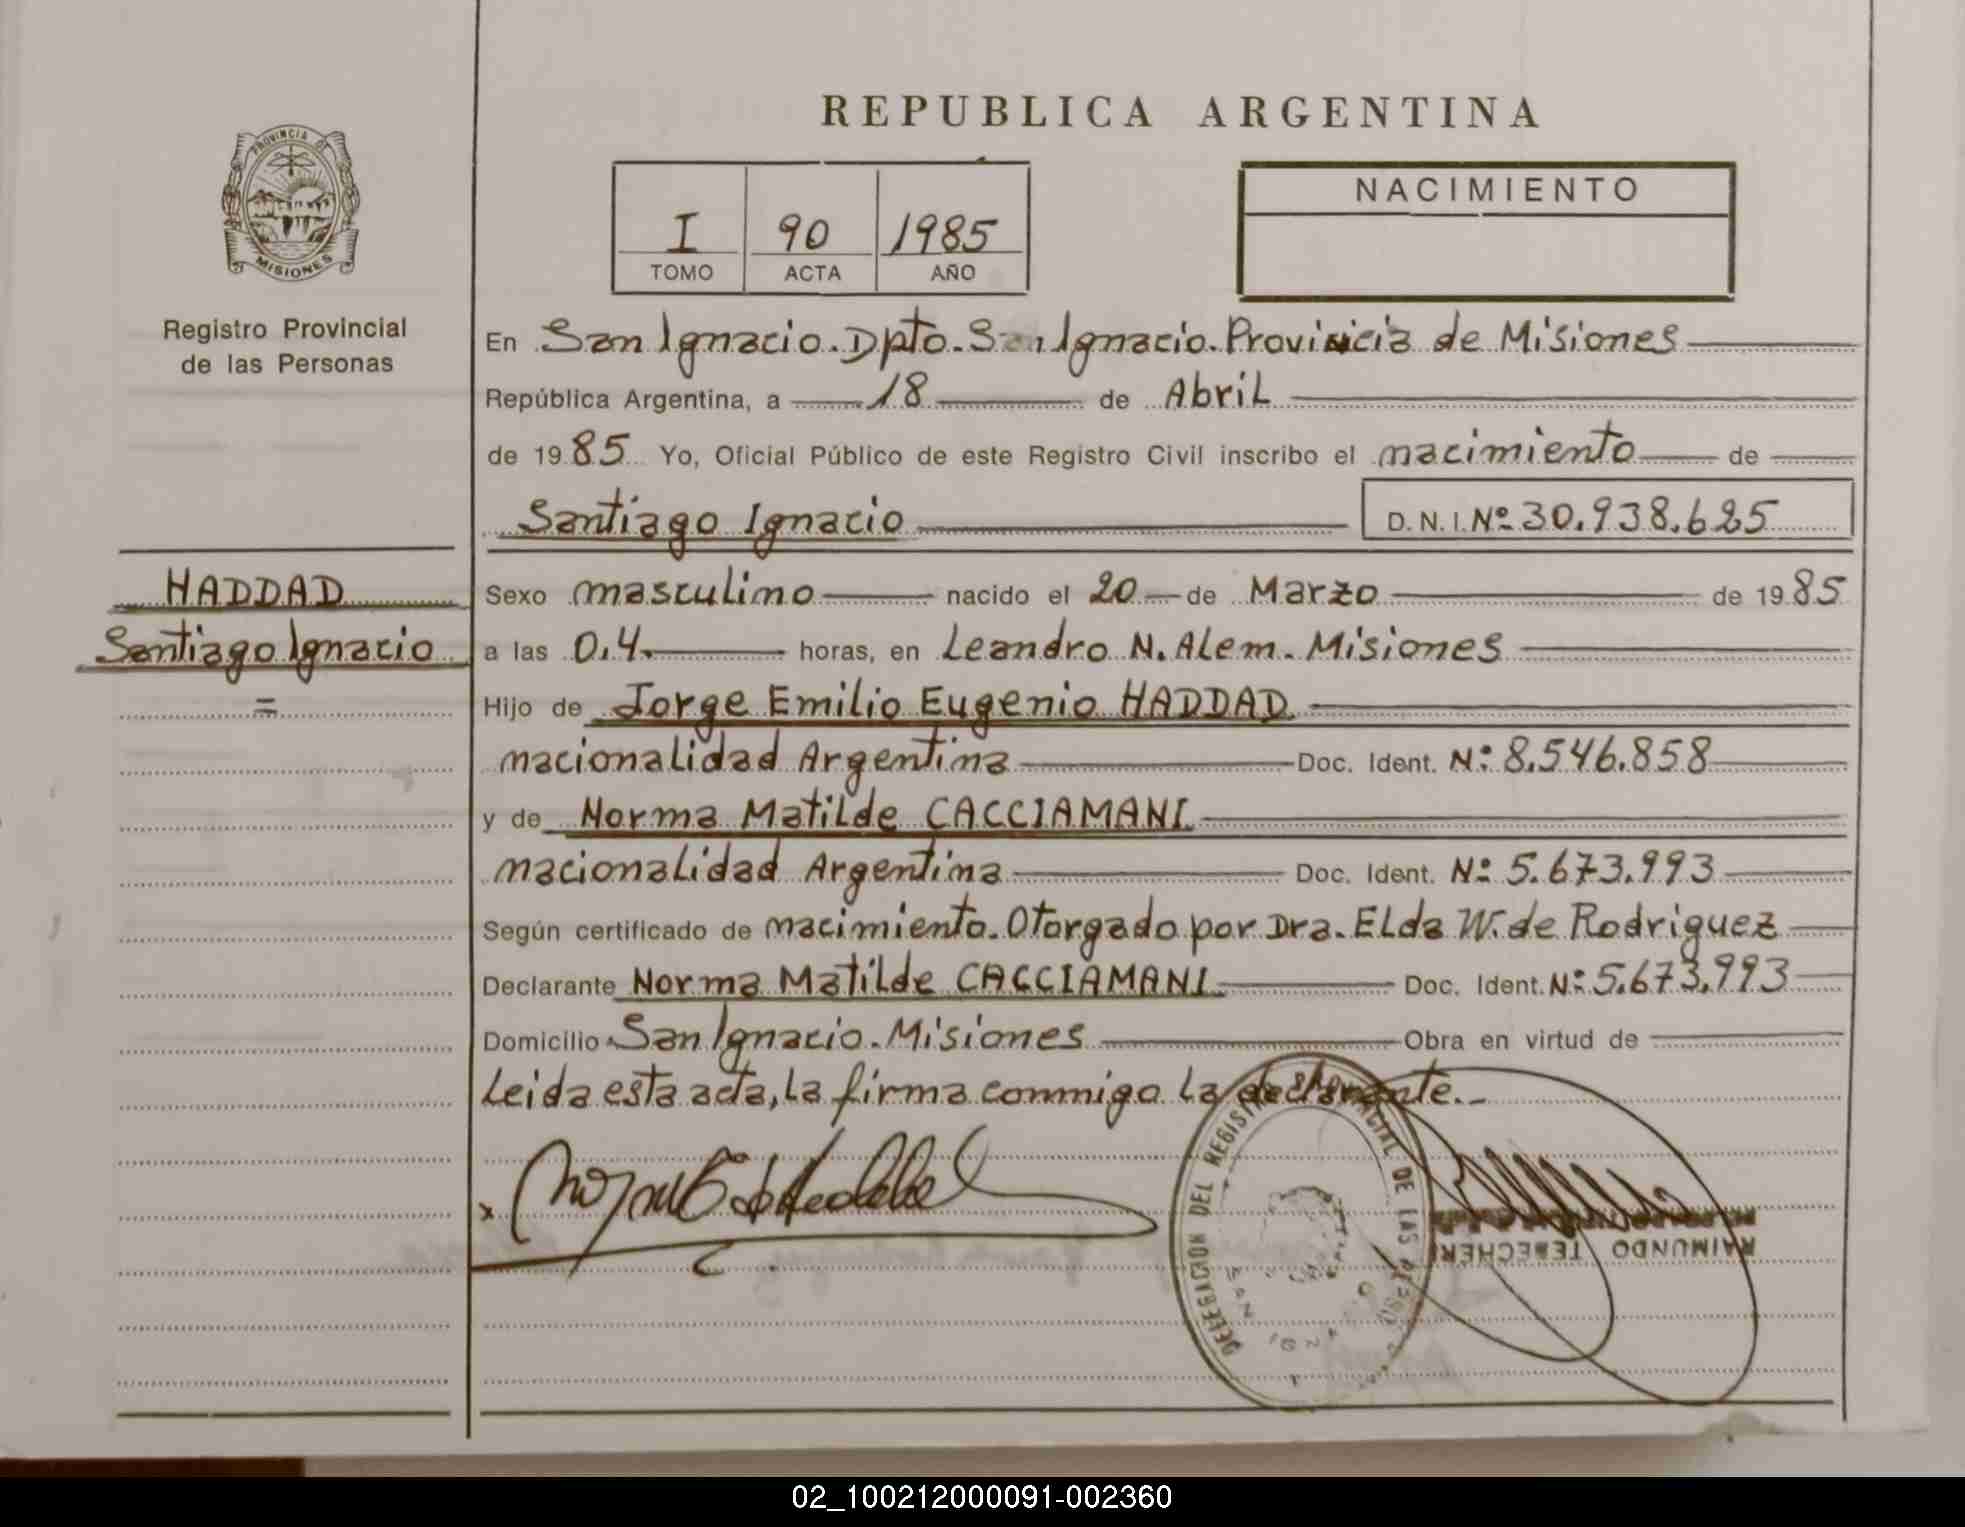 REPUBLICA ARGENTINA
PROVINCIA DE
MISIONES
Registro Provincial
de las Personas
I 90 1985
TOMO ACTA AÑO
NACIMIENTO
En San Ignacio. Dpto. San Ignacio. Provincia de Misiones
República Argentina, a 18 de Abril
de 1985 Yo, Oficial Público de este Registro Civil inscribo el nacimiento de
Santiago Ignacio D. N. I. Nº 30.938.625
HADDAD
Santiago Ignacio
=
Sexo masculino nacido el 20 de Marzo de 1985
a las 0,4. horas, en Leandro N. Alem. Misiones
Hijo de Jorge Emilio Eugenio HADDAD
nacionalidad Argentina Doc. Ident. Nº: 8.546.858
y de Norma Matilde CACCIAMANI
nacionalidad Argentina Doc. Ident. Nº: 5.673.993
Según certificado de nacimiento. Otorgado por Dra. Elda W. de Rodriguez
Declarante Norma Matilde CACCIAMANI Doc. Ident. Nº: 5.673.993
Domicilio San Ignacio. Misiones Obra en virtud de
Leida esta acta, la firma conmigo la declarante.-
DELEGACION DEL REGISTRO PROVINCIAL DE LAS PERSONAS
RAIMUNDO TEBECHERI
02_100212000091-002360